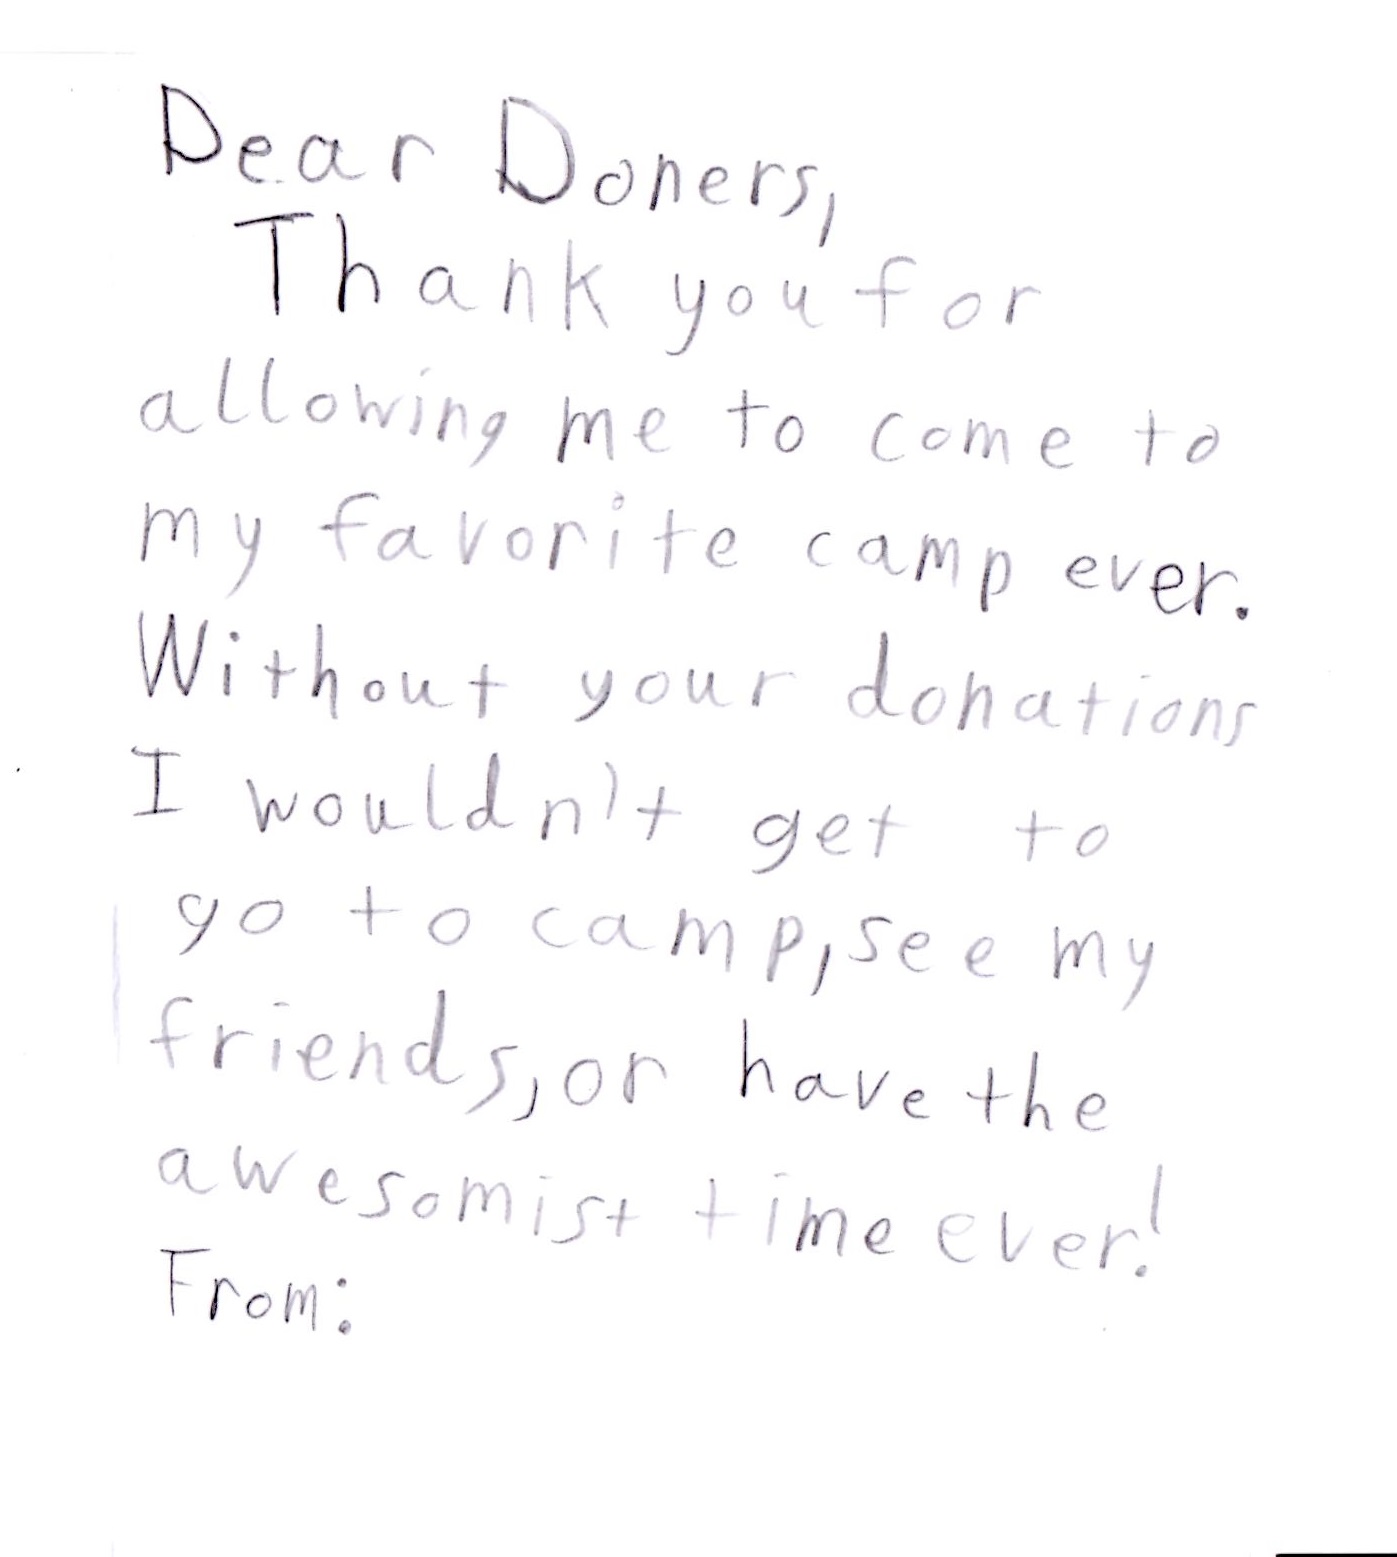 Dear Doners,
Thank you for
allowing me to come to
my favorite camp ever.
Without your donations
I wouldn't get to
go to camp, see my
friends, or have the
awesomist time ever!
From: